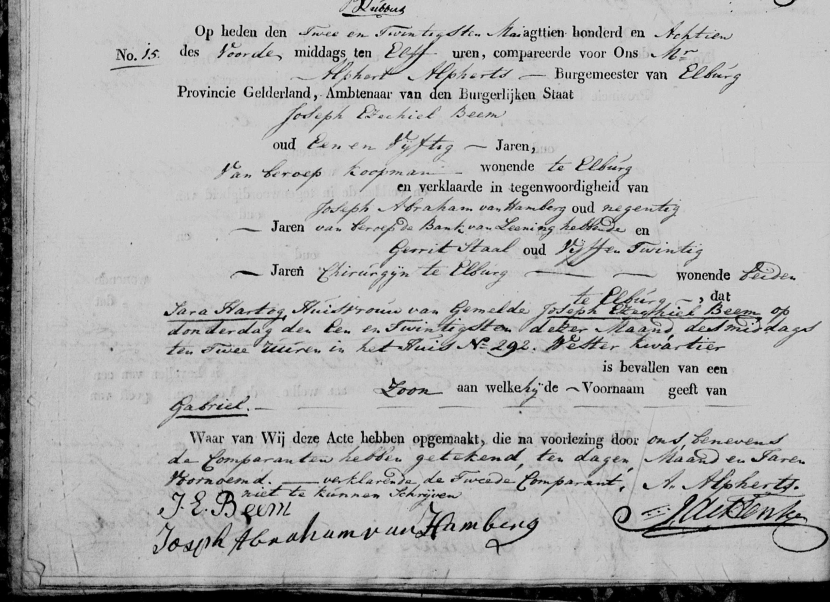 Rubbens
Op heden den Twee en Twintigsten Mai agttien honderd en Achtien
No. 15. des Voorde middags ten Elff uren, compareerde voor Ons Mr
Alphert Alpherts Burgemeester van Elburg
Provincie Gelderland, Ambtenaar van den Burgerlijken Staat
Joseph Ezechiel Beem
oud Een en Vyftig Jaren,
Van beroep koopman wonende te Elburg
en verklaarde in tegenwoordigheid van
Joseph Abraham van Hamberg oud negentig
Jaren van beroep de Bank van Leening hebbende en
Gerrit Staal oud Vyff en Twintig
Jaren Chirurgyn te Elburg wonende beiden
te Elburg, dat
Sara Hartog, Huisvrouw van Gemelde Joseph Ezechiel Beem, op
donderdag den Een en Twintigsten dezer Maand des middags
ten Twee Uuren in het Huis No 292. Wester kwartier
is bevallen van een
Zoon aan welke hy de Voornaam geeft van
Gabriel.
Waar van Wij deze Acte hebben opgemaakt, die na voorlezing door ons, benevens
de Comparanten hebben getekend, ten dagen, Maand en Jaren
Voornoemd. verklarende de Tweede Comparant, A. Alpherts.
niet te kunnen Schrijven
J. E. Beem
Joseph Abraham van Hamberg